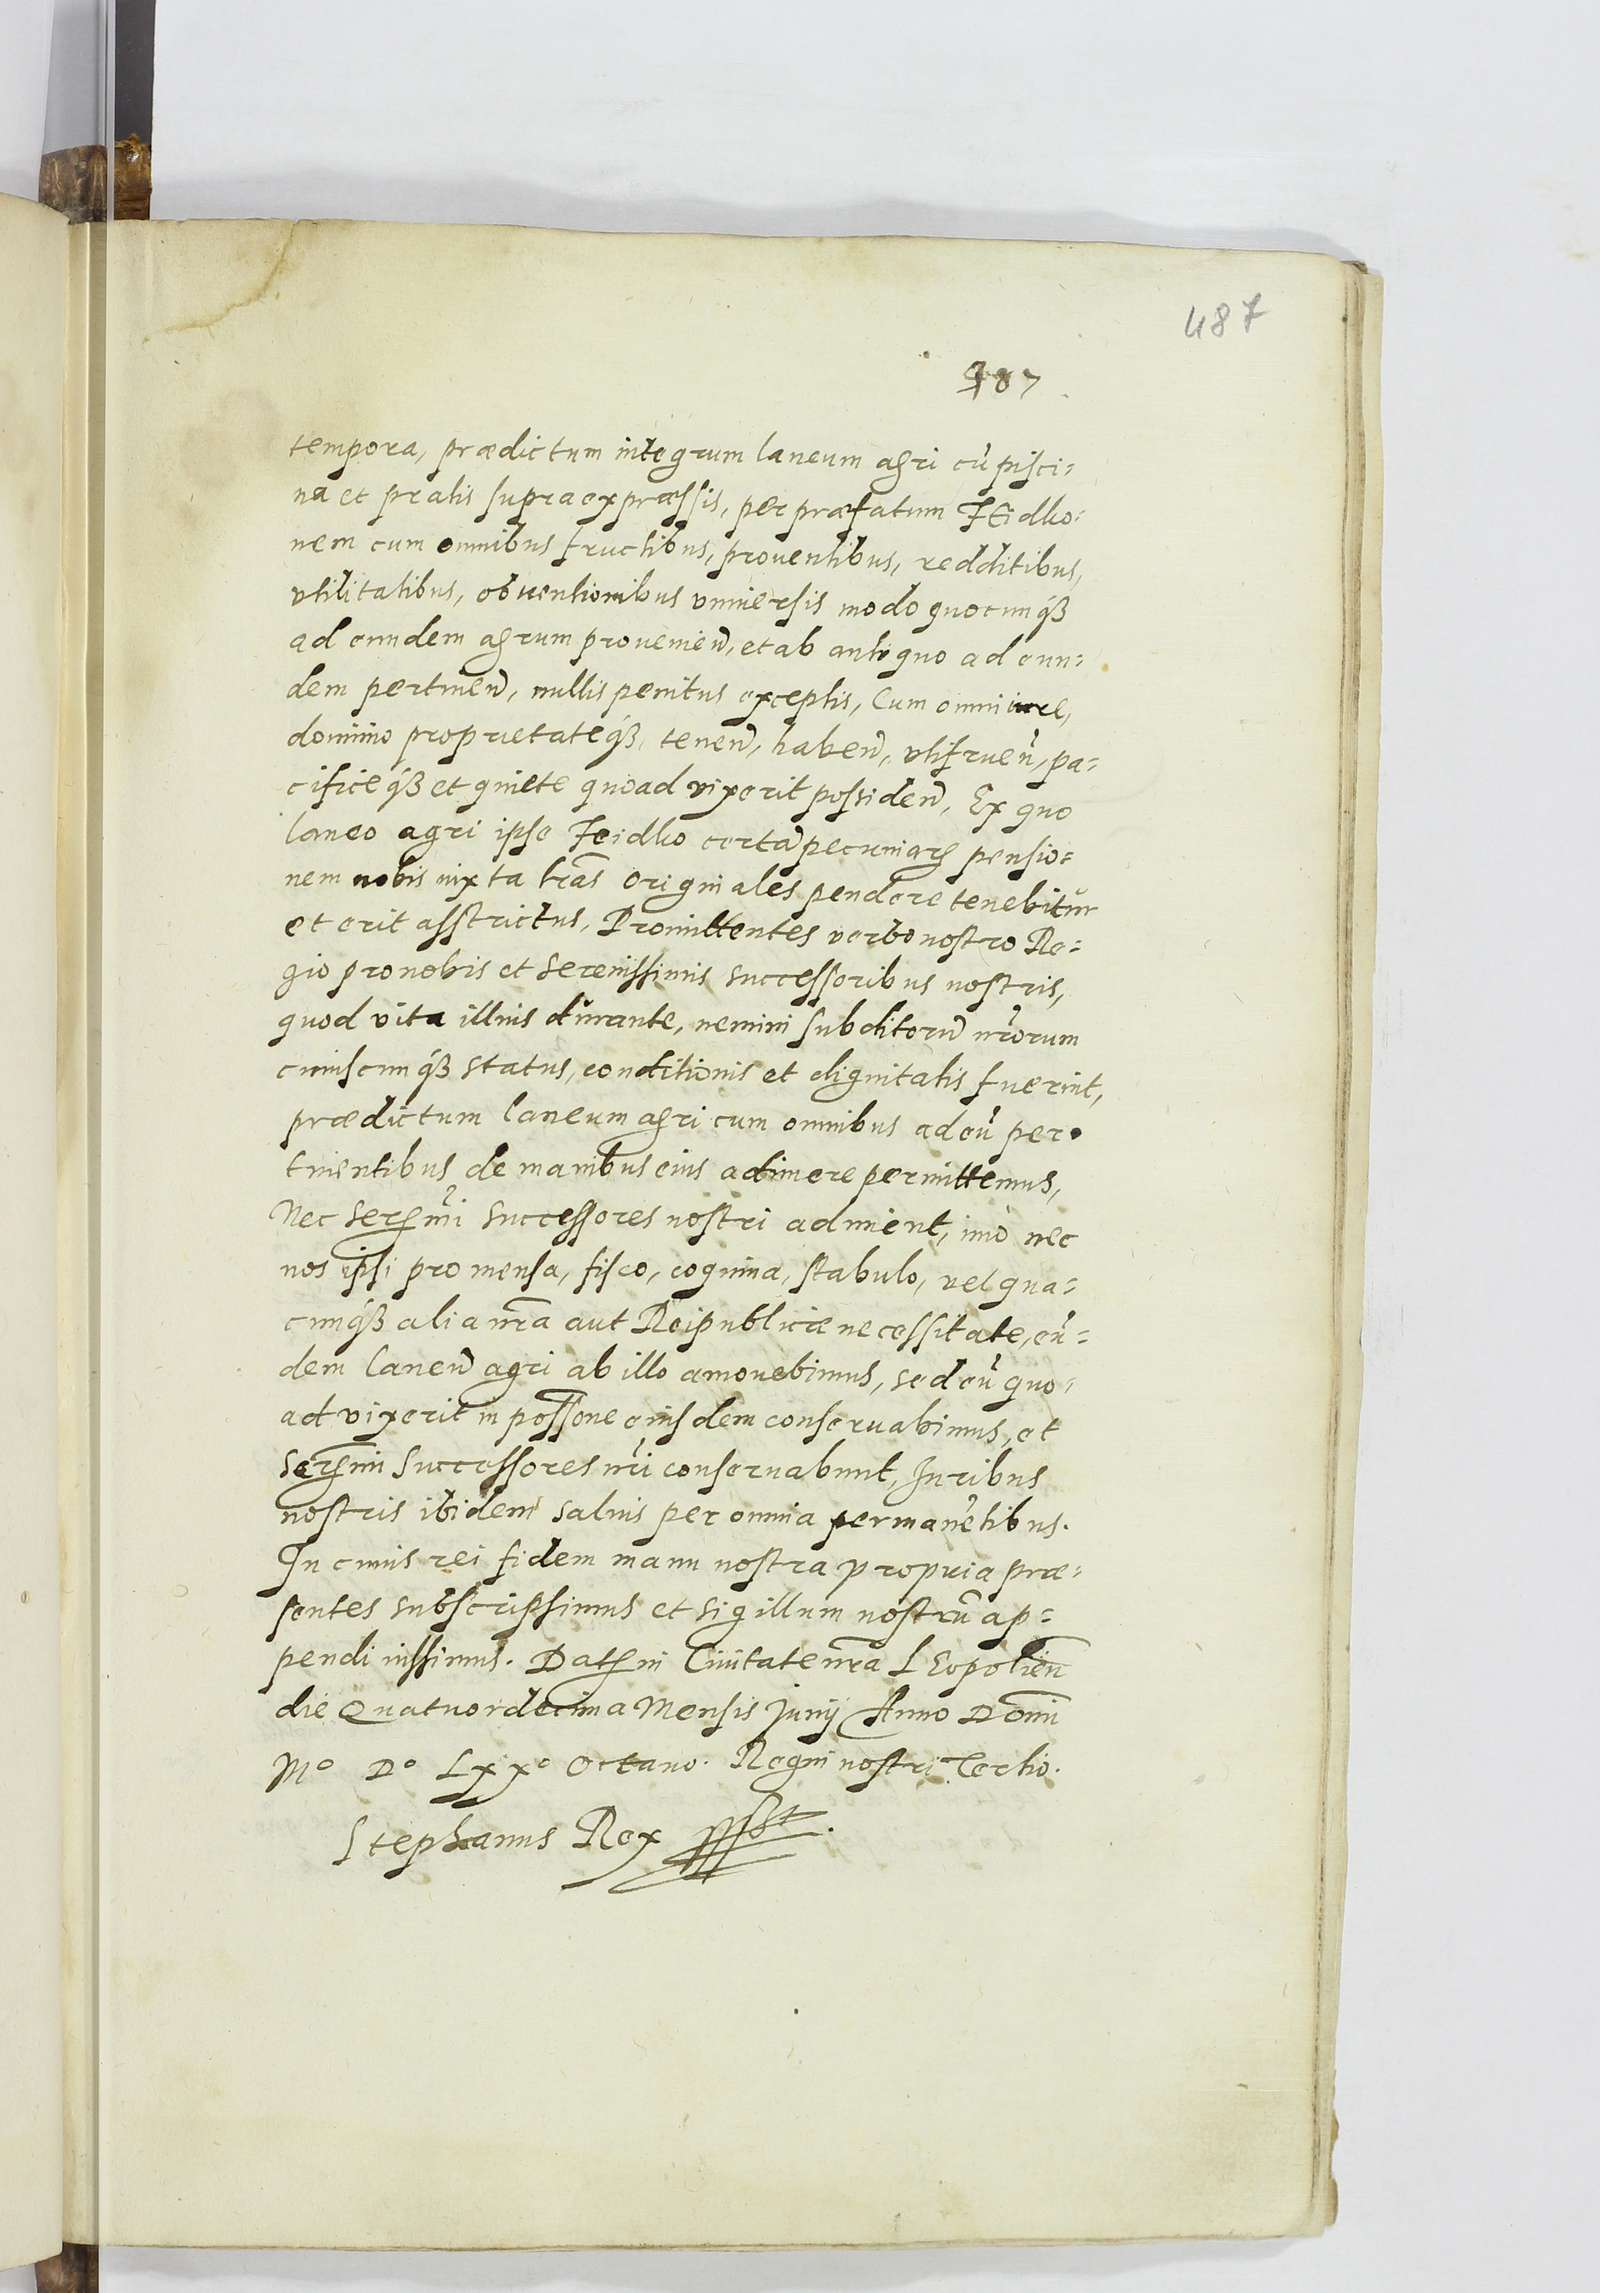 487
487
tempora, prædictum integrum laneum agri cũ pisci=
na et pratis supraexpræssis, per præfatum Feidko=
nem cum omnibus fructibus, prouentibus, redditibus,
vtilitatibus, obuentionibus vniuersis modo quocunq́ꝫ
ad eundem agrum prouenieñ, et ab antiquo ad eun=
dem pertineñ, nullis penitus exceptis, Cum omni iure,
dominio proprietateq́ꝫ, teneñ, habeñ, vtifrueñ, pa=
cificeq́ꝫ et quiete quoad vixerit possideñ, Ex quo
laneo agri ipse Feidko certã pecuniarꝫ pensio=
nem nobis iuxta lrãs originales pendere tenebitur
et erit asstrictus, Promittentes verbo nostro Re=
gio pro nobis et Serenissimis successoribus nostris,
quod vita illius durante, nemini subditorũ nrõrum
cuiuscunq́ꝫ status, conditionis et dignitatis fuerint,
prædictum laneum agri cum omnibus ad eũ per=
tinentibus de manibus eius adimere permittemus,
Nec Serꝫmi successores nostri adiment, imò nec
nos ipsi pro mensa, fisco, coquina, stabulo, vel qua=
cunq́ꝫ alia nrã aut Reipublicæ necessitate, eũ=
dem laneũ agri ab illo amouebimus, sed eũ quo=
ad vixerit in possõne eiusdem conseruabimus, et
Serꝫmi Successores nrĩ conseruabunt, Iuribus
nostris ibidem saluis per omnia permanẽtibus.
In cuius rei fidem manu nostra propria præ=
sentes subscripsimus et sigillum nostrũ ap=
pendi iussimus. Datꝫ in Ciuitate nrã Leopolieñ
die Quatuordecima Mensis Junij Anno Domĩ
Mº Dº Lxxº Octauo. Regni nostri Tertio.
Stephanus Rex sst.